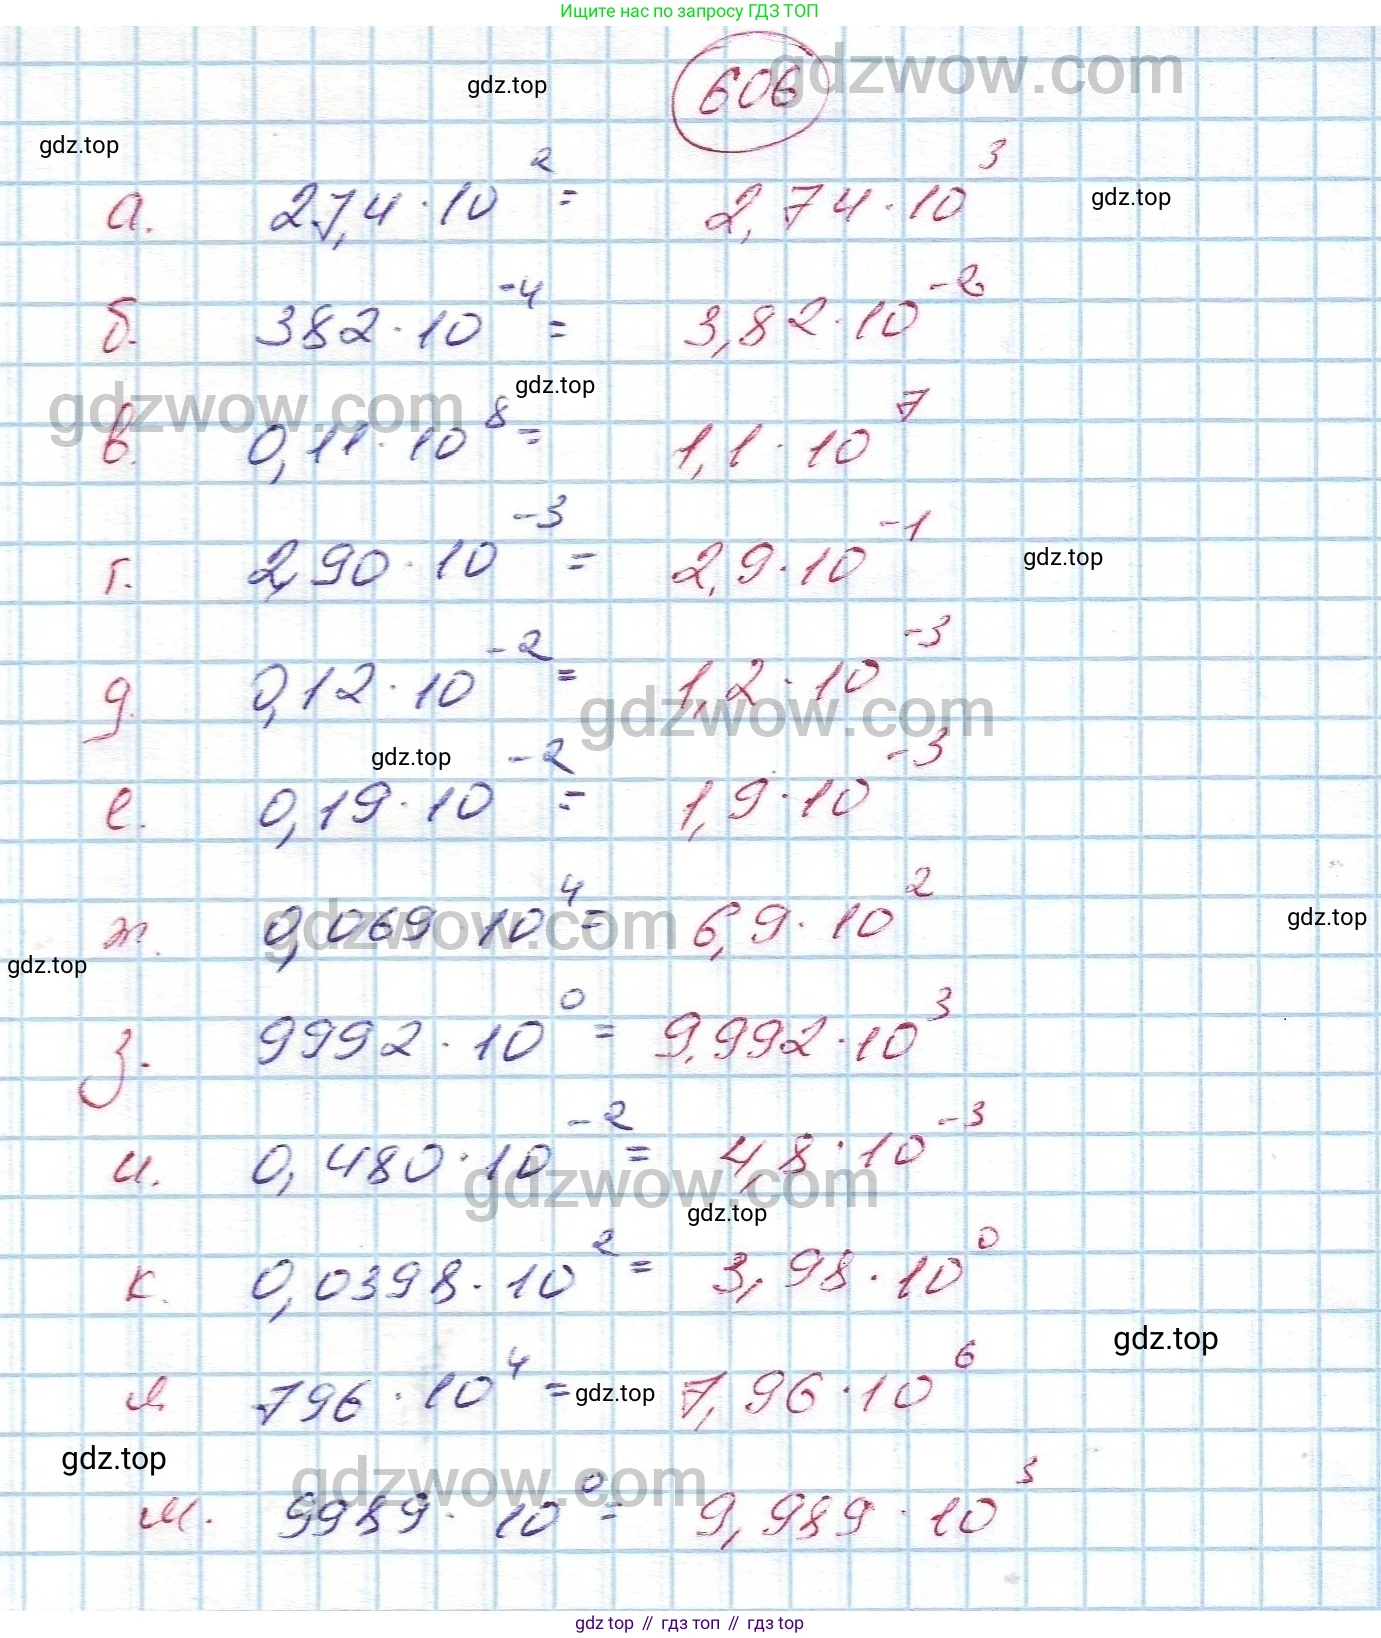 Ищите нас по запросу ГДЗ ТОП
gdzwow.com
606
gdz.top
gdz.top
а. 27,4 · 10² = 2,74 · 10³
gdz.top
б. 382 · 10⁻⁴ = 3,82 · 10⁻²
gdz.top
gdzwow.com
в. 0,11 · 10⁸ = 1,1 · 10⁷
г. 290 · 10⁻³ = 2,9 · 10⁻¹
gdz.top
д. 0,12 · 10⁻² = 1,2 · 10⁻³
gdzwow.com
gdz.top
е. 0,19 · 10⁻² = 1,9 · 10⁻³
ж. 0,069 · 10⁴ = 6,9 · 10²
gdzwow.com
gdz.top
gdz.top
з. 9992 · 10⁰ = 9,992 · 10³
и. 0,480 · 10⁻² = 4,8 · 10⁻³
gdzwow.com
gdz.top
к. 0,0398 · 10² = 3,98 · 10⁰
gdz.top
л 796 · 10⁴ = 7,96 · 10⁶
gdz.top
gdz.top
gdzwow.com
м. 9989 · 10⁰ = 9,989 · 10³
gdz top // гдз топ // gdz top